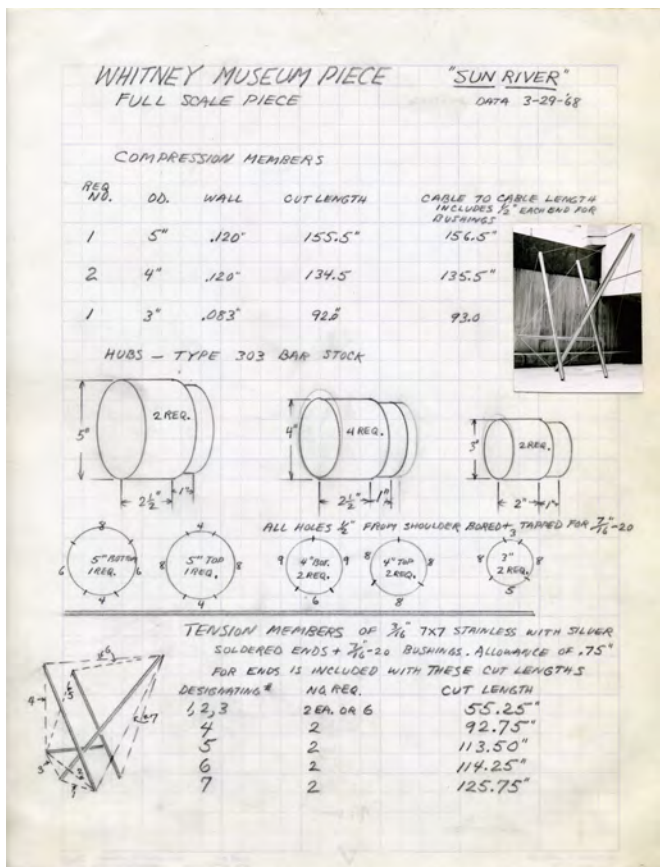 WHITNEY MUSEUM PIECE "SUN RIVER"
FULL SCALE PIECE DATA 3-29-'68
COMPRESSION MEMBERS
REQ NO. OD. WALL CUT LENGTH CABLE TO CABLE LENGTH
INCLUDES 1/2" EACH END FOR
BUSHINGS
1 5" .120" 155.5" 156.5"
2 4" .120" 134.5 135.5"
1 3" .083" 92.0" 93.0
HUBS — TYPE 303 BAR STOCK
5" 2 REQ. 4" 4 REQ. 3" 2 REQ.
2 1/2" 1" 2 1/2" 1" 2" 1"
ALL HOLES 1/2" FROM SHOULDER BORED + TAPPED FOR 7/16-20
8 4 3
5" BOTTOM 5" TOP 4" BOT. 4" TOP 3"
1 REQ. 1 REQ. 2 REQ. 2 REQ. 2 REQ.
6 6 8 8 9 9 8 8 8 8
4 4 6 8 5
TENSION MEMBERS OF 3/16" 7X7 STAINLESS WITH SILVER
SOLDERED ENDS + 7/16-20 BUSHINGS. ALLOWANCE OF .75"
FOR ENDS IS INCLUDED WITH THESE CUT LENGTHS
DESIGNATING # NO. REQ. CUT LENGTH
1, 2, 3 2 EA. OR 6 55.25"
4 2 92.75"
5 2 113.50"
6 2 114.25"
7 2 125.75"